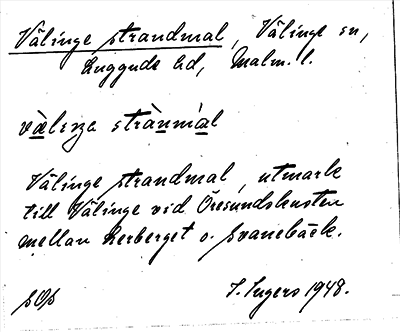 Välinge strandmal, Välinge sn,
Luggude hd, Malm. l.
välinga strànmàl
Välinge strandmal, utmark
till Välinge vid Öresundskusten
mellan Lerberget o. Svanebäck.
I. Ingers 1948.